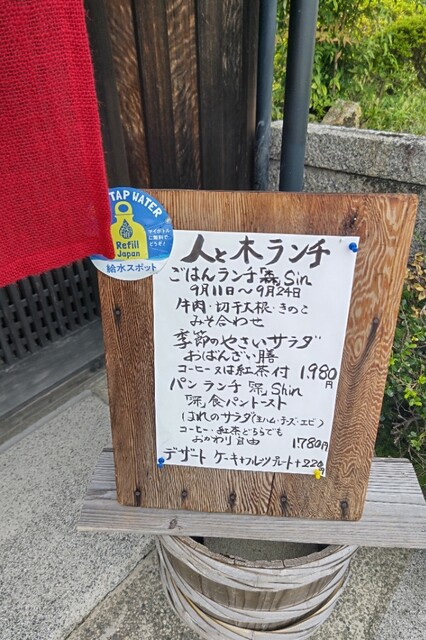 TAP WATER
マイボトル
に無料で
どうぞ!
Refill
Japan
給水スポット
人と木ランチ
ごはんランチ 森 Sin
9月11日〜9月24日
牛肉・切干大根・きのこ
みそ合わせ
季節のやさいサラダ
おばんざい膳
コーヒー又は紅茶付 1.980円
パンランチ 深 Shin
深 食パントースト
はれのサラダ(生ハム・チーズ・エビ)
コーヒー・紅茶どちらでも
おかわり自由 1.780円
デザート ケーキ+フルーツプレート+220円